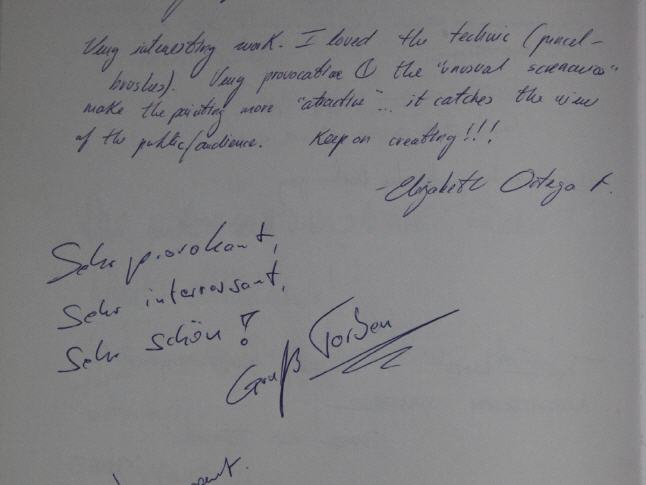 Very interesting work. I loved the technic (pincel-
brushes). Very provocative & the "unusual scenarios"
make the painting more "atractive"... it catches the view
of the public/audience. Keep on creating!!!
- Elizabeth Ortega F.
Sehr provokant,
Sehr interessant,
Sehr schön!
Gruß Torben